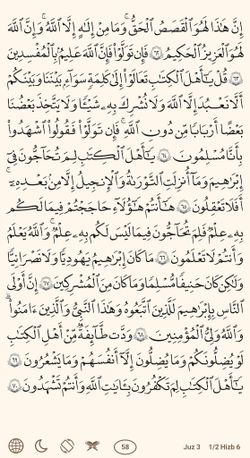 إِنَّ هَٰذَا لَهُوَ ٱلْقَصَصُ ٱلْحَقُّ ۚ وَمَا مِنْ إِلَٰهٍ إِلَّا ٱللَّهُ ۚ وَإِنَّ ٱللَّهَ
لَهُوَ ٱلْعَزِيزُ ٱلْحَكِيمُ ٦٢ فَإِن تَوَلَّوْا۟ فَإِنَّ ٱللَّهَ عَلِيمٌۢ بِٱلْمُفْسِدِينَ
٦٣ قُلْ يَٰٓأَهْلَ ٱلْكِتَٰبِ تَعَالَوْا۟ إِلَىٰ كَلِمَةٍ سَوَآءٍۭ بَيْنَنَا وَبَيْنَكُمْ
أَلَّا نَعْبُدَ إِلَّا ٱللَّهَ وَلَا نُشْرِكَ بِهِۦ شَيْـًٔا وَلَا يَتَّخِذَ بَعْضُنَا
بَعْضًا أَرْبَابًا مِّن دُونِ ٱللَّهِ ۚ فَإِن تَوَلَّوْا۟ فَقُولُوا۟ ٱشْهَدُوا۟
بِأَنَّا مُسْلِمُونَ ٦٤ يَٰٓأَهْلَ ٱلْكِتَٰبِ لِمَ تُحَآجُّونَ فِىٓ
إِبْرَٰهِيمَ وَمَآ أُنزِلَتِ ٱلتَّوْرَىٰةُ وَٱلْإِنجِيلُ إِلَّا مِنۢ بَعْدِهِۦٓ ۚ
أَفَلَا تَعْقِلُونَ ٦٥ هَٰٓأَنتُمْ هَٰٓؤُلَآءِ حَٰجَجْتُمْ فِيمَا لَكُم
بِهِۦ عِلْمٌ فَلِمَ تُحَآجُّونَ فِيمَا لَيْسَ لَكُم بِهِۦ عِلْمٌ ۚ وَٱللَّهُ يَعْلَمُ
وَأَنتُمْ لَا تَعْلَمُونَ ٦٦ مَا كَانَ إِبْرَٰهِيمُ يَهُودِيًّا وَلَا نَصْرَانِيًّا
وَلَٰكِن كَانَ حَنِيفًا مُّسْلِمًا وَمَا كَانَ مِنَ ٱلْمُشْرِكِينَ ٦٧ إِنَّ أَوْلَى
ٱلنَّاسِ بِإِبْرَٰهِيمَ لَلَّذِينَ ٱتَّبَعُوهُ وَهَٰذَا ٱلنَّبِىُّ وَٱلَّذِينَ ءَامَنُوا۟ ۗ
وَٱللَّهُ وَلِىُّ ٱلْمُؤْمِنِينَ ٦٨ وَدَّت طَّآئِفَةٌ مِّنْ أَهْلِ ٱلْكِتَٰبِ
لَوْ يُضِلُّونَكُمْ وَمَا يُضِلُّونَ إِلَّآ أَنفُسَهُمْ وَمَا يَشْعُرُونَ ٦٩
يَٰٓأَهْلَ ٱلْكِتَٰبِ لِمَ تَكْفُرُونَ بِـَٔايَٰتِ ٱللَّهِ وَأَنتُمْ تَشْهَدُونَ ٧٠
58 Juz 3 1/2 Hizb 6